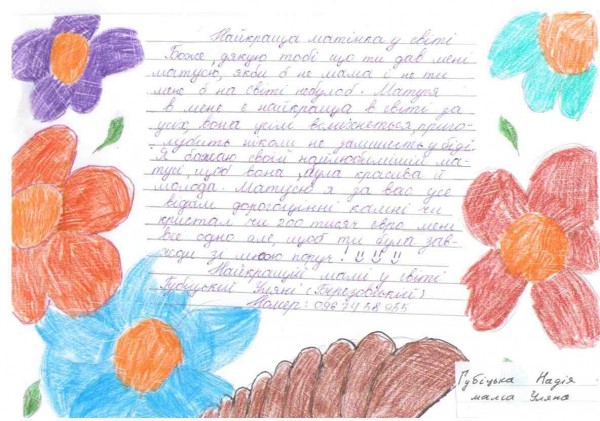 Найкраща матінка у світі
Боже, дякую тобі що ти дав мені
матусю, якби б не мама і не ти
мене б на світі небуло б. Матуся
в мене є найкраща в світі за
усіх, вона усім всміхнеться, приго-
лубить ніколи не залишить у біді.
Я божаю своїй найлюбимішій ма-
тусі, щоб вона була красива й
молода. Матусю я за вас усе
віддам дорогоцінні камні чи
кристал чи 200 тисяч євро мені
все одно але, щоб ти була зав-
жди зі мною поруч!
Найкращій мамі у світі
Губіцькій Уляні (Березовській)
Номер: 096
Губіцька Надія
мама Уляна